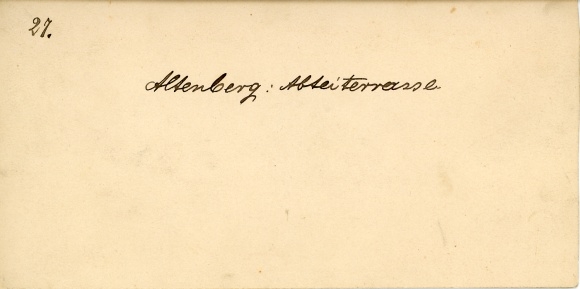 27.
Altenberg: Abteiterrasse